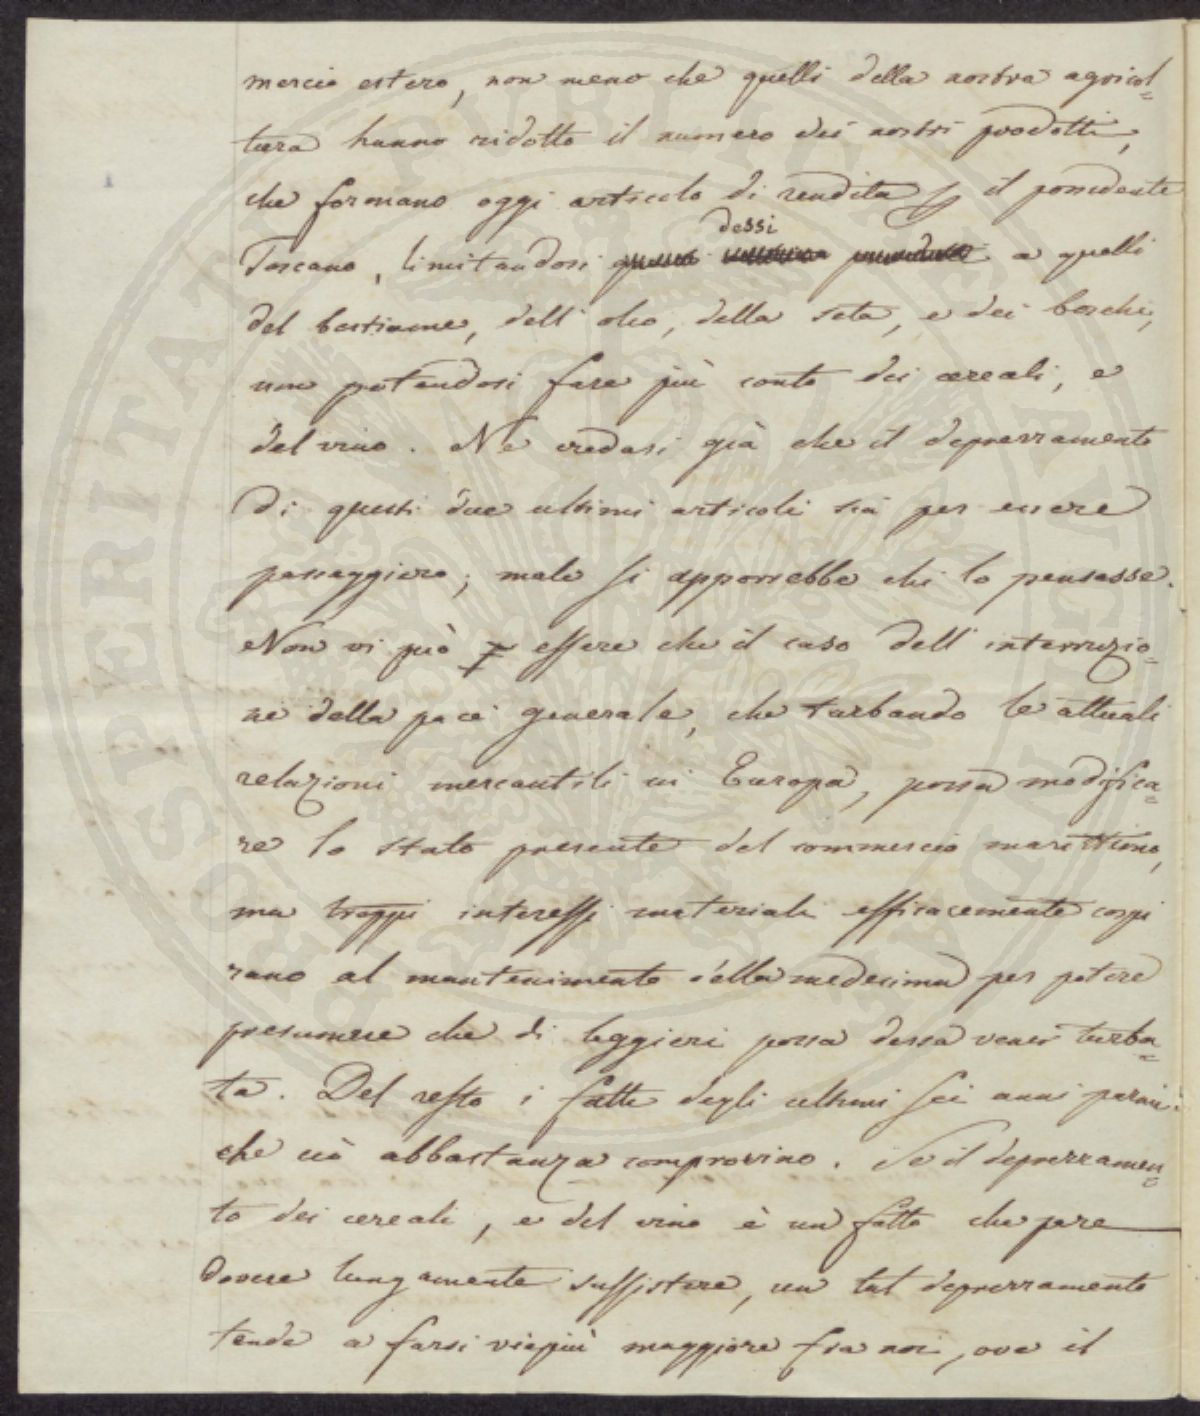 mercio estero, non meno che quelli della nostra agricol=
tura hanno ridotto il numero dei nostri prodotti,
che formano oggi articolo di rendita p il possidente
Toscano, limitandosi dessi a quelli
del bestiame, dell' olio, della seta, e dei boschi,
non potendosi fare più conto dei cereali, e
del vino. Nè credasi già che il deprezzamento
di questi due ultimi articoli sia per essere
passaggiero; male si apporrebbe chi lo pensasse.
Non vi può essere che il caso dell' interruzio=
ne della pace generale, che turbando le attuali
relazioni mercantili in Europa, possa modifica=
re lo stato presente del commercio marittimo,
ma troppi interessi materiali efficacemente cospi
rano al mantenimento della medesima per potere
presumere che di leggieri possa dessa venir turba=
ta. Del resto i fatti degli ultimi sei anni parmi
che ciò abbastanza comprovino. Se il deprezzamen=
to dei cereali, e del vino è un fatto che pare
dovere lungamente sussistere, un tal deprezzamento
tende a farsi viepiù maggiore fra noi, ove il
PROSPERITATI PUBLICAE AUGENDAE